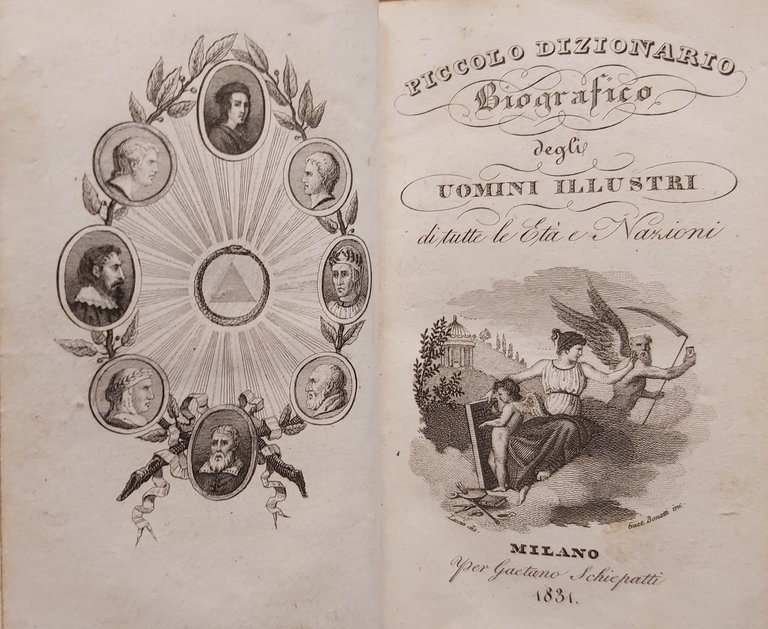 PICCOLO DIZIONARIO
Biografico
degli
UOMINI ILLUSTRI
di tutte le Età e Nazioni
Gaet. Bonatti inc.
MILANO
Per Gaetano Schiepatti
1831.